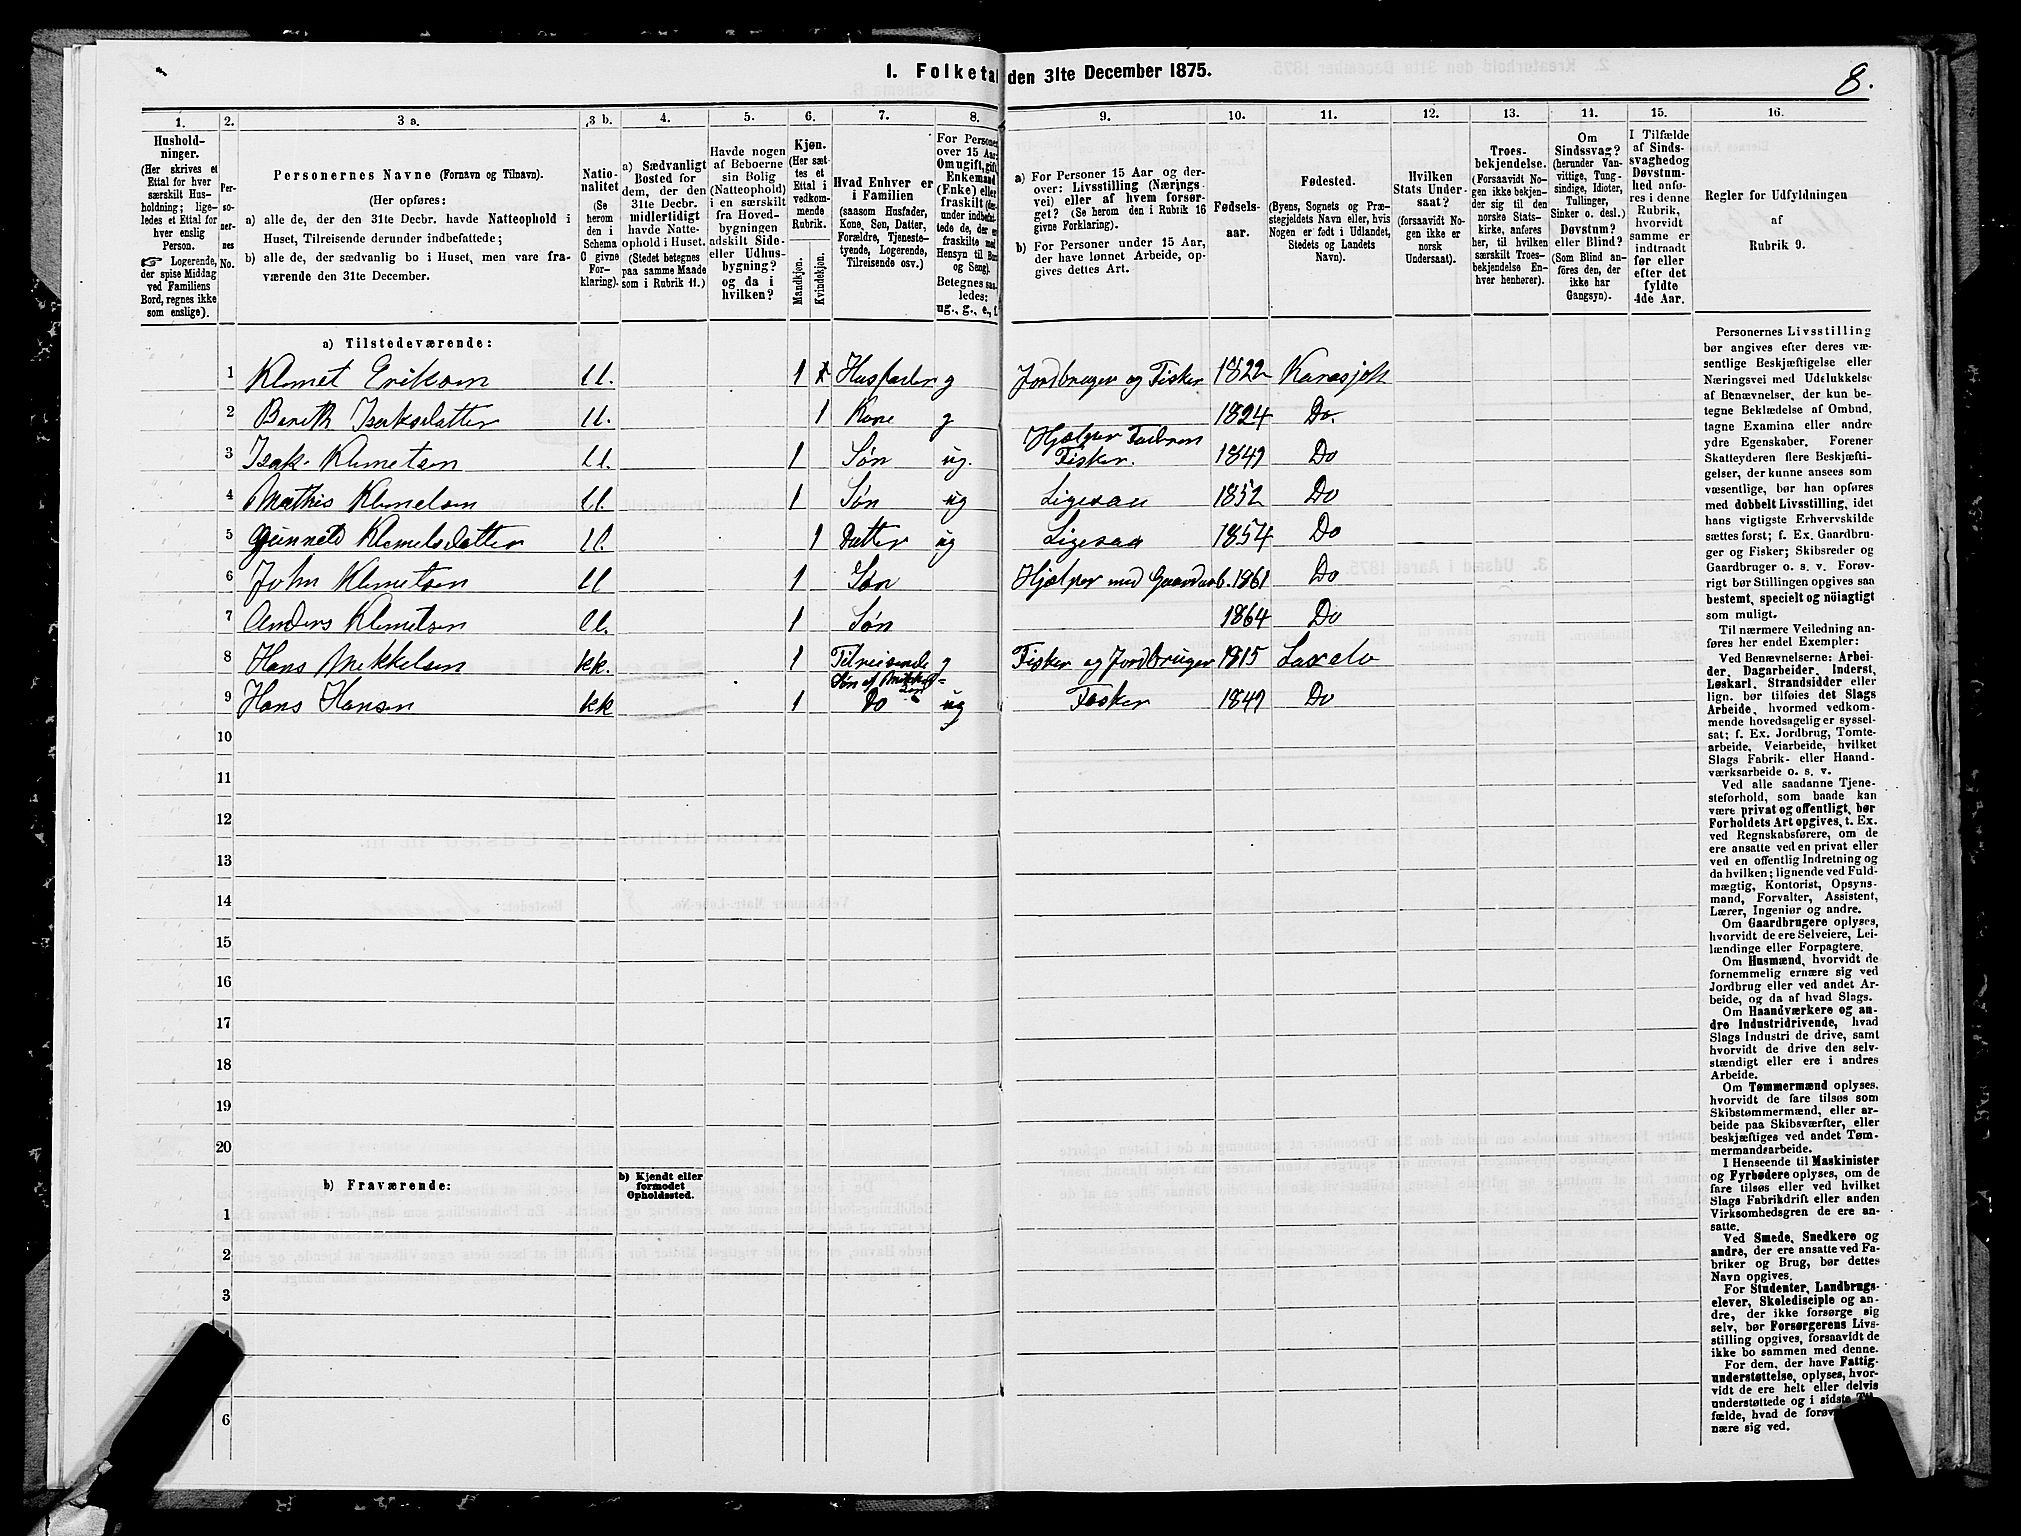 1. Folketal den 31te December 1875.
8.
1.
Hushold-
ninger.
(Her skrives et
Ettal for hver
særskilt Hus-
holdning; lige-
ledes et Ettal for
hver enslig
Person.
☞ Logerende,
der spise Middag
ved Familiens
Bord, regnes ikke
som enslige).
2.
Per-
so-
ner-
nes
No.
3 a.
Personernes Navne (Fornavn og Tilnavn).
(Her opføres:
a) alle de, der den 31te Decbr. havde Natteophold i
Huset, Tilreisende derunder indbefattede;
b) alle de, der sædvanlig bo i Huset, men vare fra-
værende den 31te December.
3 b.
Natio-
nalitet
(Se
herom
den i
Schema
C givne
For-
klaring).
4.
a) Sædvanligt
Bosted for
dem, der den
31te Decbr.
midlertidigt
havde Natte-
ophold i Huset.
(Stedet betegnes
paa samme Maade
som i Rubrik 11.)
5.
Havde nogen
af Beboerne
sin Bolig
(Natteophold)
i en særskilt
fra Hoved-
bygningen
adskilt Side-
eller Udhus-
bygning?
og da i
hvilken?
6.
Kjøn.
(Her sæt-
tes et
Ettal i
vedkom-
mende
Rubrik.
Mandkjøn.
Kvindekjøn.
7.
Hvad Enhver er
i Familien
(saasom Husfader,
Kone, Søn, Datter,
Forældre, Tjeneste-
tyende, Logerende,
Tilreisende osv.)
8.
For Personer
over 15 Aar:
Om ugift, gift,
Enkemand
(Enke) eller
fraskilt
fraskilte med
Hensyn til Bord
og Seng).
Betegnes saa-
ledes:
ug., g., e., f.
9.
a) For Personer 15 Aar og der-
over: Livsstilling (Nærings-
vei) eller af hvem forsør-
get? (Se herom den i Rubrik 16
givne Forklaring).
b) For Personer under 15 Aar,
der have lønnet Arbeide, op-
gives dettes Art.
10.
Fødsels-
aar.
11.
Fødested.
(Byens, Sognets og Præ-
stegjeldets Navn eller, hvis
Nogen er født i Udlandet,
Stedets og Landets
Navn).
12.
Hvilken
Stats Under-
saat?
(forsaavidt No-
gen ikke er
norsk
Undersaat).
13.
Troes-
bekjendelse.
(Forsaavidt No-
gen ikke bekjen-
der sig til den
norske Stats-
kirke, anføres
her, til hvilken
særskilt Troes-
bekjendelse En-
hver henhører).
14.
Om
Sindssvag?
(herunder Van-
vittige, Tung-
sindige, Idioter,
Tullinger,
Sinker o. desl.)
Døvstum?
eller Blind?
(Som Blind an-
føres den, der
ikke har
Gangsyn).
15.
I Tilfælde
af Sinds-
svaghed og
Døvstum-
hed anfø-
res i denne
Rubrik,
hvorvidt
samme er
indtraadt
før eller
efter det
fyldte
4de Aar.
16.
Regler for Udfyldningen
af
Rubrik 9.
a) Tilstedeværende:
1 Klemet Eriksen ll. 1 Husfader g Jordbruger og Fisker 1822 Karasjok
2 Berith Isaksdatter ll. 1 Kone g 1824 Do.
3 Isak Klemetsen ll. 1 Søn ug. Hjælper Faderen Fisker. 1849 Do
4 Mathis Klemetsen ll. 1 Søn ug Ligesaa 1852 Do
5 Gunneld Klemetsdatter ll. 1 Datter ug Ligesaa 1854 Do
6 John Klemetsen ll 1 Søn Hjælper med Gaardsarb. 1861 Do
7 Anders Klemetsen ll. 1 Søn 1864 Do
8 Hans Mikkelsen kk. 1 Tilreisende g Fisker og Jordbruger 1815 Laxelv
9 Hans Hansen kk 1 Søn af Mikkelsen Do ug Fisker 1849 Do
10
11
12
13
14
15
16
17
18
19
20
b) Fraværende:
b) Kjendt eller
formodet
Opholdssted.
1
2
3
4
6
Personernes Livsstilling
bør angives efter deres væ-
sentlige Beskjæftigelse eller
Næringsvei med Udelukkelse
af Benævnelser, der kun be-
tegne Beklædelse af Ombud,
tagne Examina eller andre
ydre Egenskaber. Forener
Skatteyderen flere Beskjæfti-
gelser, der kunne ansees som
væsentlige, bør han opføres
med dobbelt Livsstilling, idet
hans vigtigste Erhvervskilde
sættes først; f. Ex. Gaardbru-
ger og Fisker; Skibsreder og
Gaardbruger o. s. v. Forøv-
rigt bør Stillingen opgives saa
bestemt, specielt og nöiagtigt
som muligt.
Til nærmere Veiledning an-
føres her endel Exempler:
Ved Benævnelserne: Arbei-
der, Dagarbeider, Inderst,
Løskarl, Strandsidder eller
lign. bør tilføies det Slags
Arbeide, hvormed vedkom-
mende hovedsagelig er syssel-
sat; f. Ex. Jordbrug, Tomte-
arbeide, Veiarbeide, hvilket
Slags Fabrik- eller Haand-
værksarbeide o. s. v.
Ved alle saadanne Tjene-
steforhold, som baade kan
være privat og offentligt, bør
Forholdets Art opgives, t. Ex.
ved Regnskabsførere, om de
ere ansatte ved en privat eller
ved en offentlig Indretning og
da hvilken; lignende ved Fuld-
mægtig, Kontorist, Opsyns-
mand, Forvalter, Assistent,
Lærer, Ingeniør og andre.
Om Gaardbrugere oplyses,
hvorvidt de ere Selveiere, Lei-
lændinge eller Forpagtere.
Om Husmænd, hvorvidt de
fornemmelig ernære sig ved
Jordbrug eller ved andet Ar-
beide, og da af hvad Slags.
Om Haandværkere og an-
dre Industridrivende, hvad
Slags Industri de drive, samt
hvorvidt de drive den selv-
stændigt eller ere i andres
Arbeide.
Om Tømmermænd oplyses,
hvorvidt de fare tilsøs som
Skibstømmermænd, eller ar-
beide paa Skibsværfter, eller
beskjæftiges ved andet Tøm-
mermandsarbeide.
I Henseende til Maskinister
og Fyrbødere oplyses, om de
fare tilsøs eller ved hvilket
Slags Fabrikdrift eller anden
Virksomhedsgren de ere an-
satte.
Ved Smede, Snedkere og
andre, der ere ansatte ved Fa-
briker og Brug, bør dettes
Navn opgives.
For Studenter, Landbrugs-
elever, Skoledisciple og an-
dre, der ikke forsørge sig
selv, bør Forsørgerens Livs-
stilling opgives, forsaavidt de
ikke bo sammen med denne.
For dem, der have Fattig-
understøttelse, oplyses, hvor-
vidt de ere helt eller delvis
understøttede og i sidste
fælde, hvad de
nære sig ved.